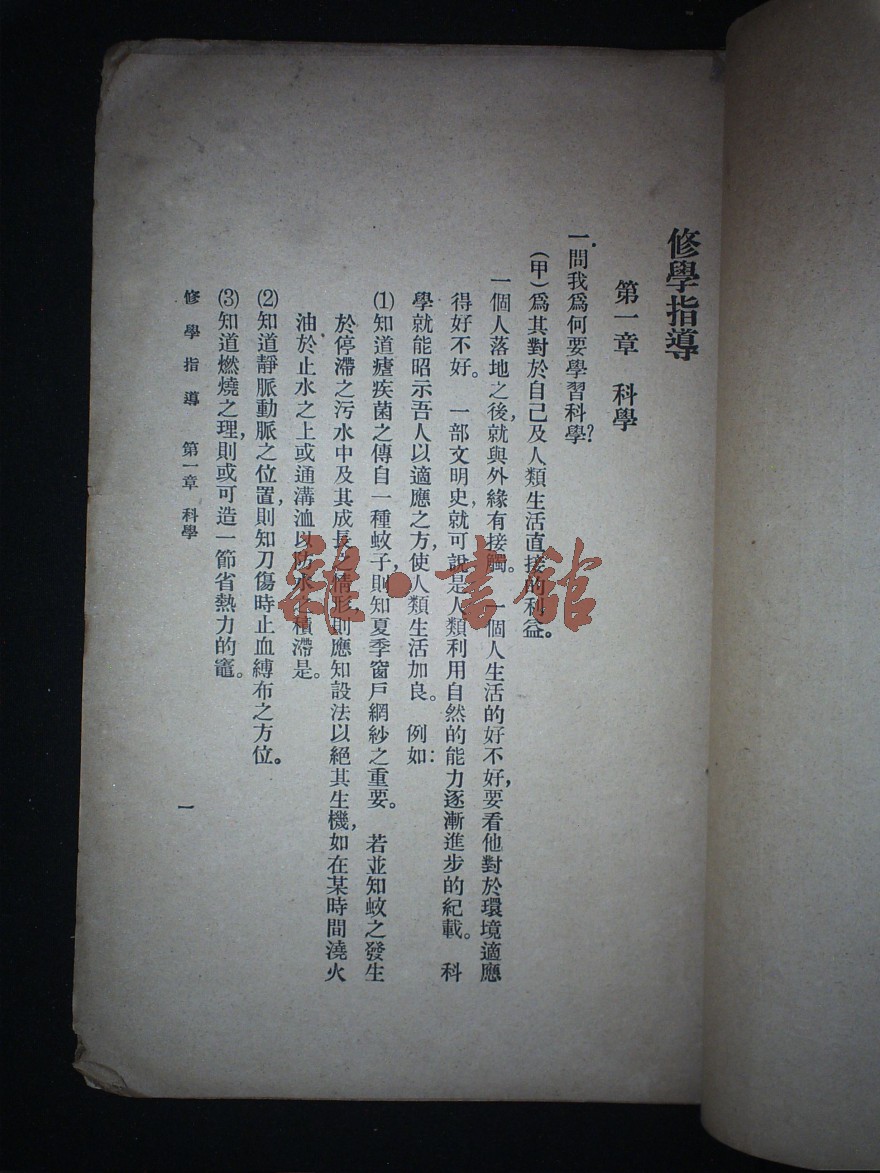 修學指導
第一章　科學
一.問我爲何要學習科學?
(甲)爲其對於自己及人類生活直接的利益。
一個人落地之後,就與外緣有接觸。　一個人生活的好不好,要看他對於環境適應
得好不好。　一部文明史,就可說是人類利用自然的能力逐漸進步的紀載。　科
學就能昭示吾人以適應之方,使人類生活加良。　例如:
(1)知道瘧疾菌之傳自一種蚊子,則知夏季窗戶網紗之重要。　若並知蚊之發生
於停滯之污水中及其成長之情形,則應知設法以絕其生機,如在某時間澆火
油於止水之上或通溝洫以防水之積滯是。
(2)知道靜脈動脈之位置,則知刀傷時止血縛布之方位。
(3)知道燃燒之理,則或可造一節省熱力的竈。
修學指導　第一章　科學
一
雜·書館